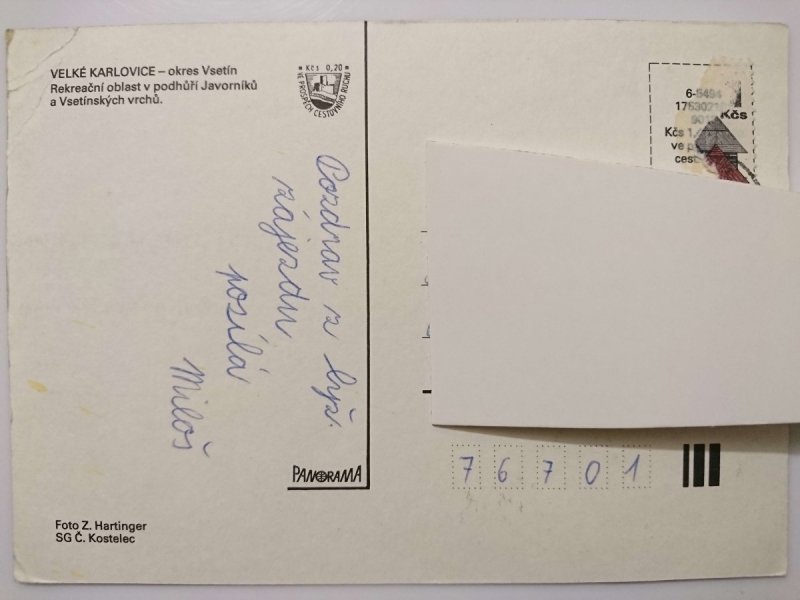 VELKÉ KARLOVICE – okres Vsetín
Rekreační oblast v podhůří Javorníků
a Vsetínských vrchů.
Kčs 0,20
VE PROSPĚCH CESTOVNÍHO RUCHU
Pozdrav z lyž.
zájezdu
posílá
Miloš
PANORAMA
Foto Z. Hartinger
SG Č. Kostelec
6-5494
Kčs
Kčs 1,
ve
76701